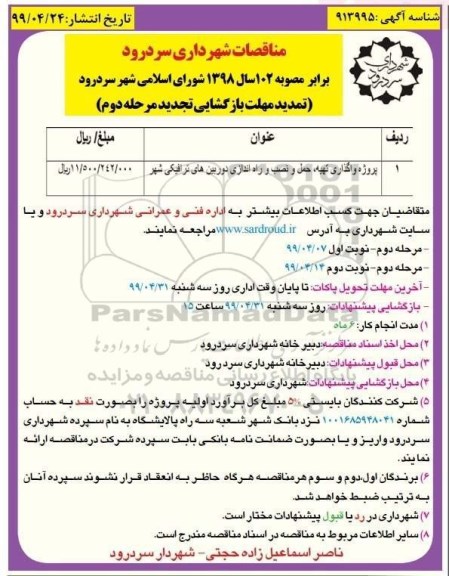 شناسه آگهی: ۹۱۳۹۹۵
تاریخ انتشار: ۹۹/۰۴/۲۴
شهرداری سردرود
مناقصات شهرداری سردرود
برابر مصوبه ۱۰۲ سال ۱۳۹۸ شورای اسلامی شهر سردرود
(تمدید مهلت بازگشایی تجدید مرحله دوم)
ردیف عنوان مبلغ/ ریال
۱ پروژه واگذاری تهیه، حمل و نصب و راه اندازی دوربین های ترافیکی شهر ۱۱/۵۰۰/۲۴۲/۰۰۰ریال
متقاضیان جهت کسب اطلاعات بیشتر به اداره فنی و عمرانی شهرداری سردرود و یا
سایت شهرداری به آدرس www.sardroud.ir مراجعه نمایند.
-مرحله دوم- نوبت اول ۹۹/۰۴/۰۷
-مرحله دوم- نوبت دوم ۹۹/۰۴/۱۴
- آخرین مهلت تحویل پاکات: تا پایان وقت اداری روز سه شنبه ۹۹/۰۴/۳۱
- بازگشایی پیشنهادات: روز سه شنبه ۹۹/۰۴/۳۱ ساعت ۱۵
ParsNamadData
۱) مدت انجام کار: ۶ ماه
۲) محل اخذ اسناد مناقصه: دبیر خانه شهرداری سردرود
۳) محل قبول پیشنهادات: دبیر خانه شهرداری سردرود
پایگاه اطلاع رسانی مناقصه و مزایده
۴) محل بازگشایی پیشنهادات: شهرداری سردرود
۵) شرکت کنندگان بایستی ۵% مبلغ کل برآورد اولیه پروژه را بصورت نقد به حساب
شماره ۱۰۰۱۶۸۵۹۴۸۰۴۱ نزد بانک شهر شعبه سه راه پالایشگاه به نام سپرده شهرداری
سردرود واریز و یا بصورت ضمانت نامه بانکی بابت سپرده شرکت در مناقصه ارائه
نمایند.
۶) برندگان اول، دوم و سوم هر مناقصه هرگاه حاظر به انعقاد قرار نشوند سپرده آنان
به ترتیب ضبط خواهد شد.
۷) شهرداری در رد یا قبول پیشنهادات مختار است.
۸) سایر اطلاعات مربوط به مناقصه در اسناد مناقصه مندرج است.
ناصر اسماعیل زاده حجتی- شهردار سردرود